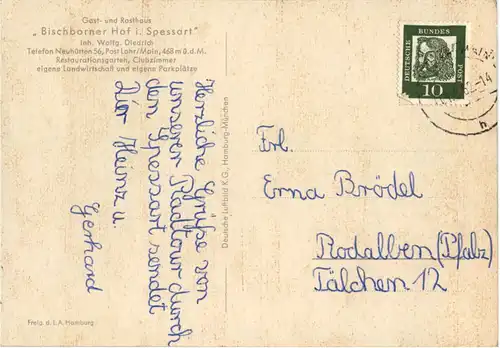 Gast- und Rasthaus
„Bischborner Hof i. Spessart"
Inh. Wolfg. Diedrich
Telefon Neuhütten 56, Post Lohr/Main, 468 m ü. d. M.
Restaurationsgarten, Clubzimmer
eigene Landwirtschaft und eigene Parkplätze
Herzliche Grüße von
unserer Radtour durch
den Spessart sendet
Dir Heinz u.
Gerhard
Freig. d. L.A. Hamburg
Deutsche Luftbild K.G., Hamburg-München
DEUTSCHE BUNDESPOST
10
-14
h
Frl.
Erna Brödel
Rodalben (Pfalz)
Tälchen 12